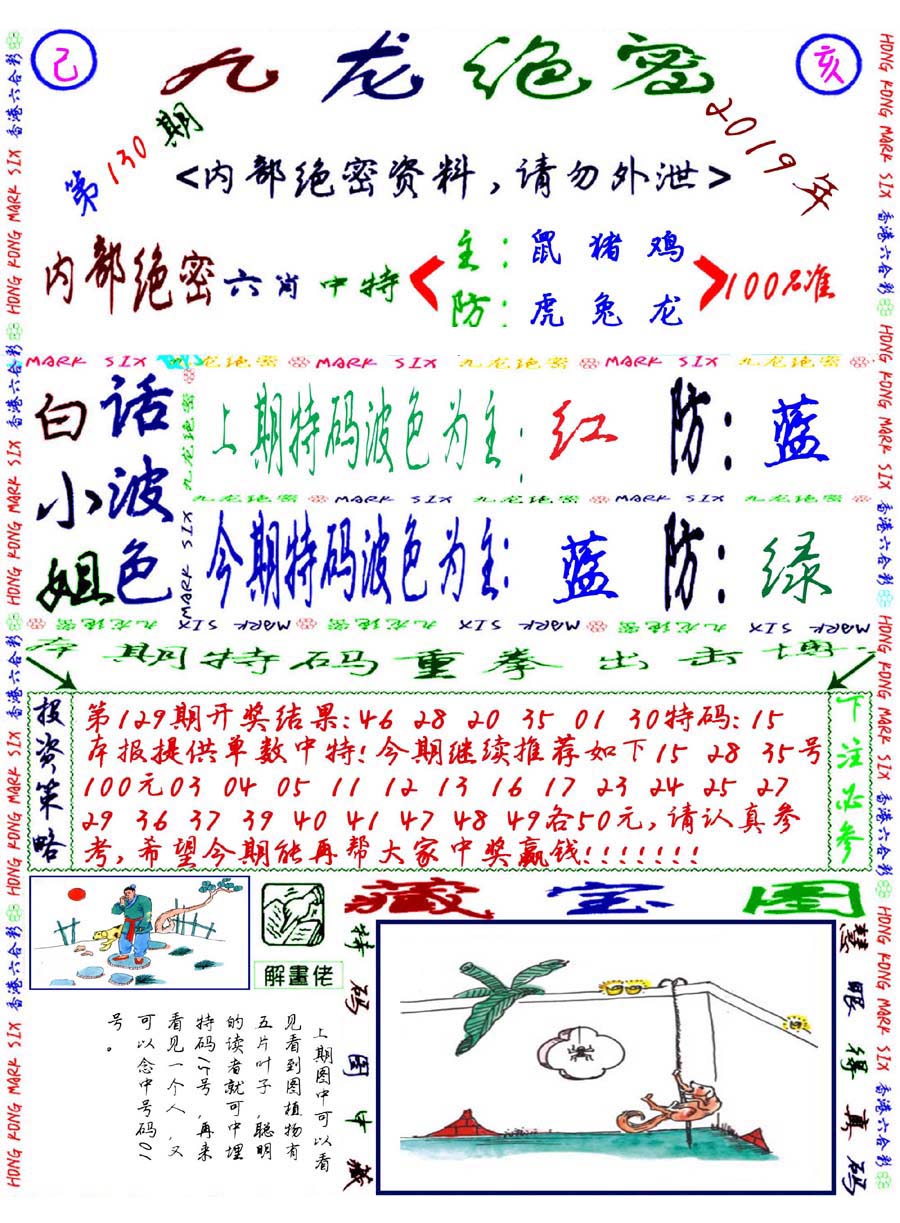 己
九龙绝密
亥
第130期
2019年
<内部绝密资料,请勿外泄>
内部绝密六肖中特
主:鼠 猪 鸡
防:虎 兔 龙
100%准
MARK SIX 九龙绝密 MARK SIX 九龙绝密 MARK SIX 九龙绝密
白小姐
话波色
九龙绝密 MARK SIX
上期特码波色为主:红 防:蓝
九龙绝密 MARK SIX 九龙绝密 MARK SIX 九龙绝密
今期特码波色为主:蓝 防:绿
MARK SIX 九龙绝密 MARK SIX 九龙绝密 MARK SIX 九龙绝密
期特码重拳出击
投资策略
第129期开奖结果:46 28 20 35 01 30特码:15
本报提供单数中特!今期继续推荐如下15 28 35号
100元03 04 05 11 12 13 16 17 23 24 25 27
29 36 37 39 40 41 47 48 49各50元,请认真参
考,希望今期能再帮大家中奖赢钱!!!!!!!
下注必参
解畫佬
藏宝图
上期图中可以看
见看到图植物有
五片叶子,聪明
的读者就可中埋
特码15号,再来
看见一个人,又
可以念中号码01
号。
特码图中藏
慧眼得真码
香港六合彩 HONG KONG MARK SIX 香港六合彩 HONG KONG MARK SIX 香港六合彩 HONG KONG MARK SIX 香港六合彩 HONG KONG MARK SIX
HONG KONG MARK SIX 香港六合彩 HONG KONG MARK SIX 香港六合彩 HONG KONG MARK SIX 香港六合彩 HONG KONG MARK SIX 香港六合彩